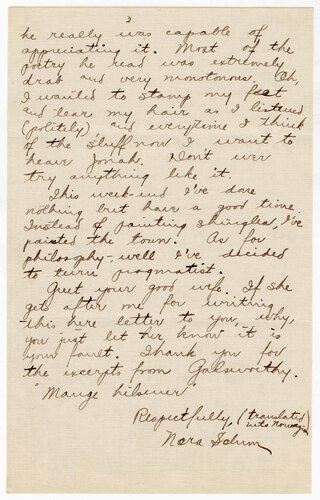 2
he really was capable of
appreciating it. Most of the
poetry he read was extremely
drab and very monotonous. Oh,
I wanted to stamp my feet
and tear my hair as I listened
(politely) and everytime I think
of the stuff now I want to
heave Jonah. Don't ever
try anything like it.
This week-end I've done
nothing but have a good time
Instead of painting shingles, I've
painted the town. As for
philosophy - well I've decided
to turn pragmatist.
Greet your good wife. If she
gets after me for writing
this here letter to you, why,
you just let her know it is
your fault. Thank you for
the excerpts from Galsworthy.
"Mange hilsener"
Respectfully, (translated
into Norwegian
Nora